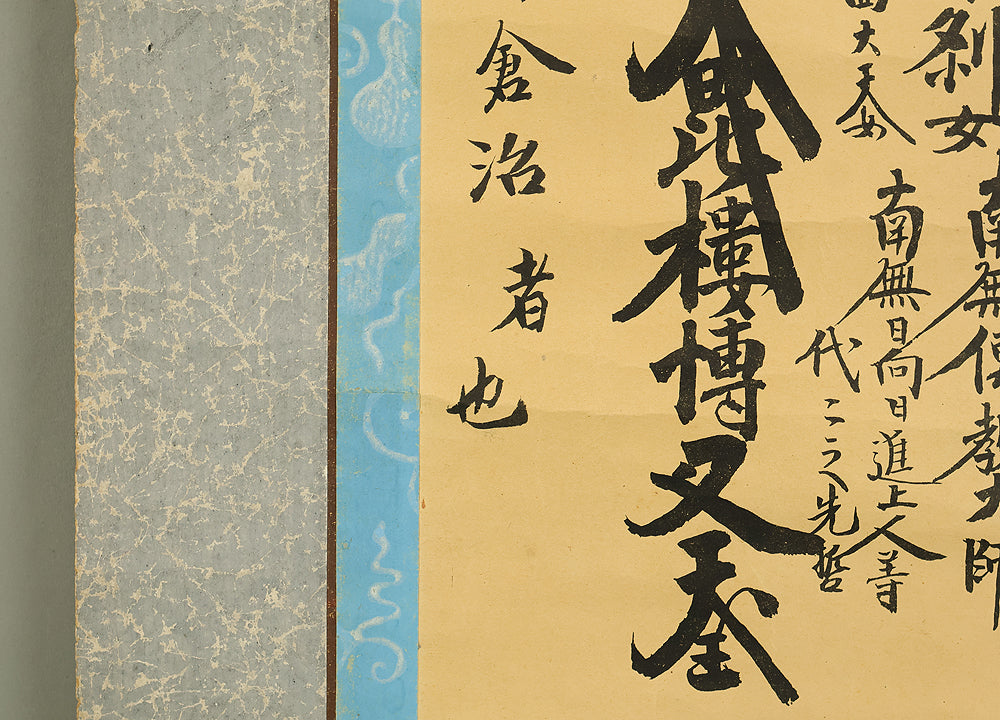 刹女
南無傳教大師
大天女
南無日向日進上人等
代 先哲
大毘樓博叉天王
倉治者也